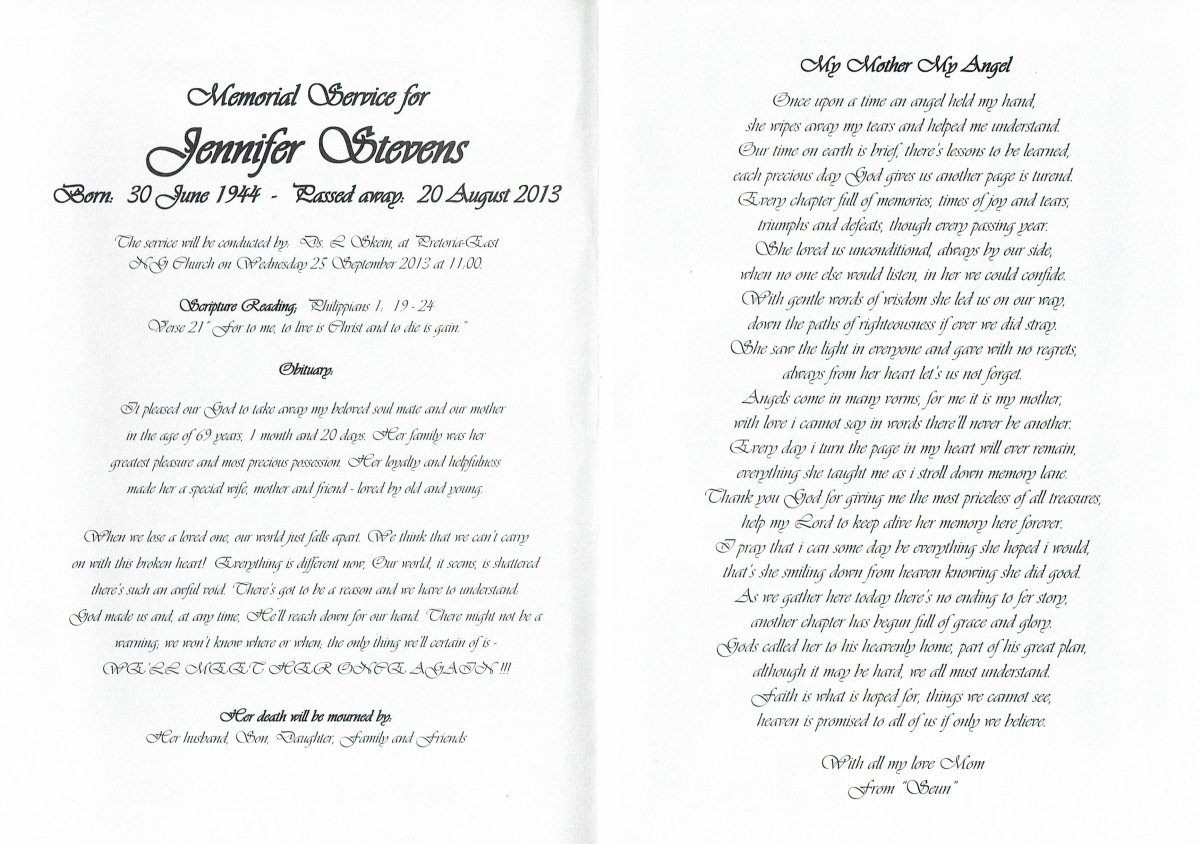 Memorial Service for
Jennifer Stevens
Born: 30 June 1944 - Passed away: 20 August 2013
The service will be conducted by: Ds. L Skein, at Pretoria-East
NG Church on Wednesday 25 September 2013 at 11:00.
Scripture Reading: Philippians 1: 19 - 24
Verse 21" For to me, to live is Christ and to die is gain."
Obituary:
It pleased our God to take away my beloved soul mate and our mother
in the age of 69 years, 1 month and 20 days. Her family was her
greatest pleasure and most precious possession. Her loyalty and helpfulness
made her a special wife, mother and friend - loved by old and young.
When we lose a loved one, our world just falls apart. We think that we can't carry
on with this broken heart! Everything is different now, Our world, it seems, is shattered
there's such an awful void. There's got to be a reason and we have to understand,
God made us and, at any time, He'll reach down for our hand. There might not be a
warning, we won't know where or when, the only thing we'll certain of is -
WE'LL MEET HER ONCE AGAIN !!!
Her death will be mourned by:
Her husband, Son, Daughter, Family and Friends
My Mother My Angel
Once upon a time an angel held my hand,
she wipes away my tears and helped me understand.
Our time on earth is brief, there's lessons to be learned,
each precious day God gives us another page is turend.
Every chapter full of memories, times of joy and tears,
triumphs and defeats, though every passing year.
She loved us unconditional, always by our side,
when no one else would listen, in her we could confide.
With gentle words of wisdom she led us on our way,
down the paths of righteousness if ever we did stray.
She saw the light in everyone and gave with no regrets,
always from her heart let's us not forget.
Angels come in many vorms, for me it is my mother,
with love i cannot say in words there'll never be another.
Every day i turn the page in my heart will ever remain,
everything she taught me as i stroll down memory lane.
Thank you God for giving me the most priceless of all treasures,
help my Lord to keep alive her memory here forever.
I pray that i can some day be everything she hoped i would,
that's she smiling down from heaven knowing she did good.
As we gather here today there's no ending to fer story,
another chapter has begun full of grace and glory.
Gods called her to his heavenly home, part of his great plan,
although it may be hard, we all must understand.
Faith is what is hoped for, things we cannot see,
heaven is promised to all of us if only we believe.
With all my love Mom
From "Seun"